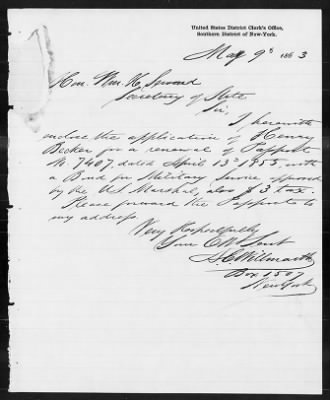 United States District Clerk's Office,
Southern District of New-York.
May 9th 1863
Hon. Wm. H. Seward
Secretary of State
Sir,
I herewith
enclose the application of Henry
Becker for a renewal of Passport
No. 7407, dated April 13th 1855, with
a Bond for Military Service approved
by the US Marshal, also $3 tax.
Please forward the Passport to
my address
Very Respectfully
Your Ob't Servt
Willmarth
Box 1,507
New York